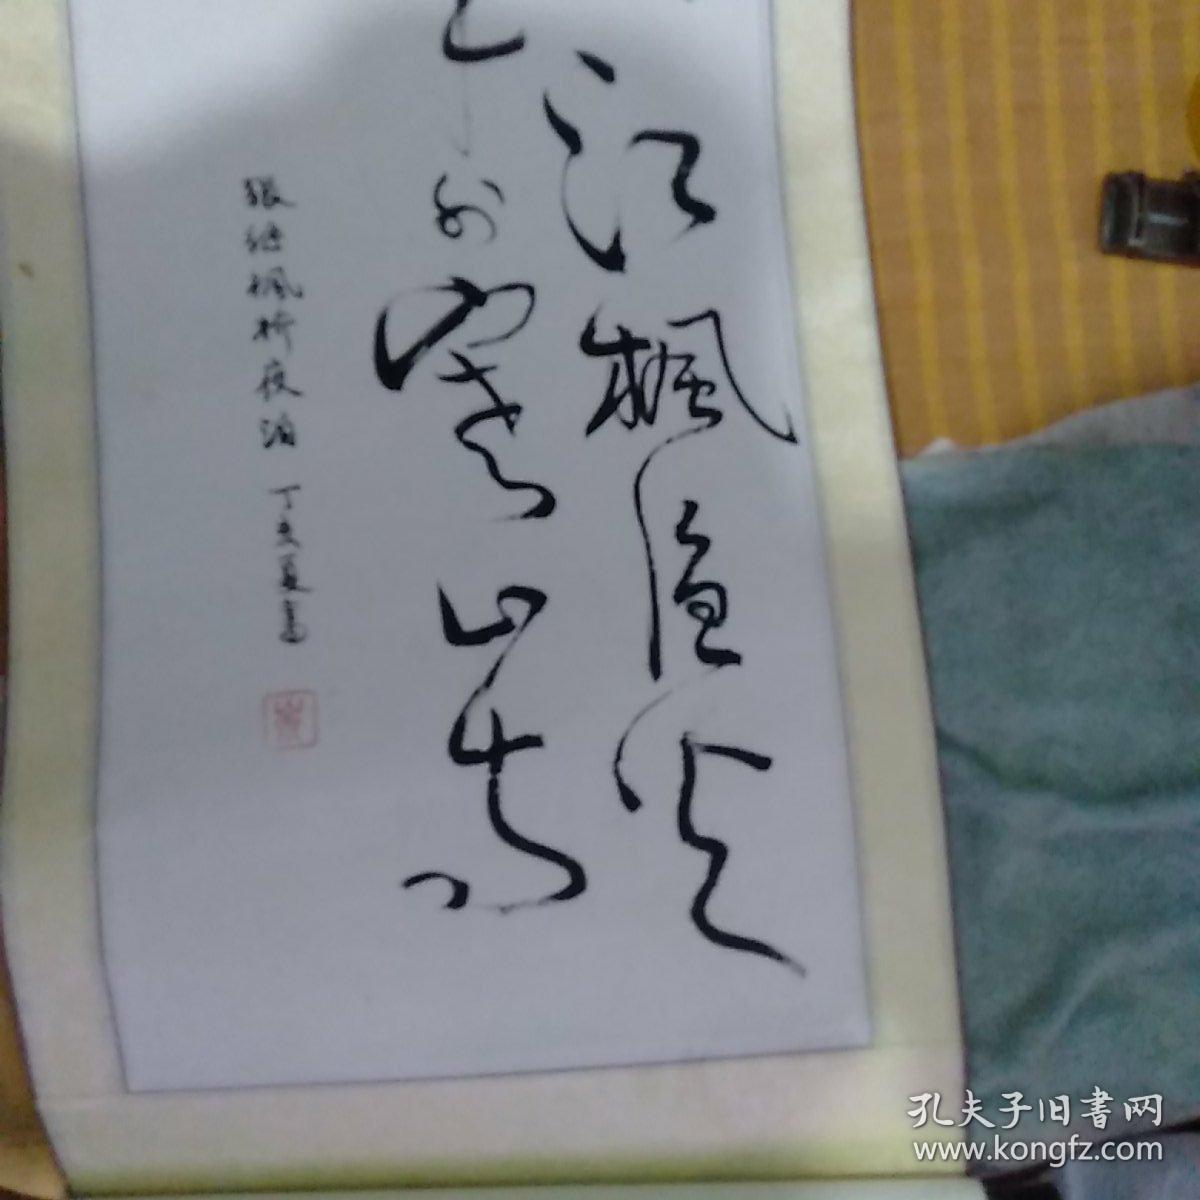 江楓渔火
外寒山寺
張继楓桥夜泊 丁亥夏書
孔夫子旧書网
www.kongfz.com